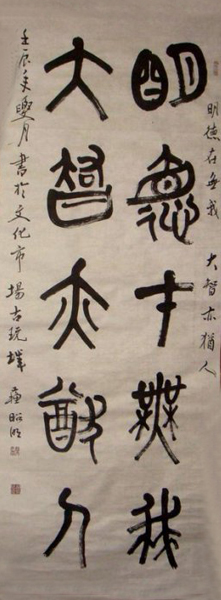 明德在無我 大智亦猶人
明悳才無我
大智亦猶人
壬辰年月書於文化市場古玩 昭